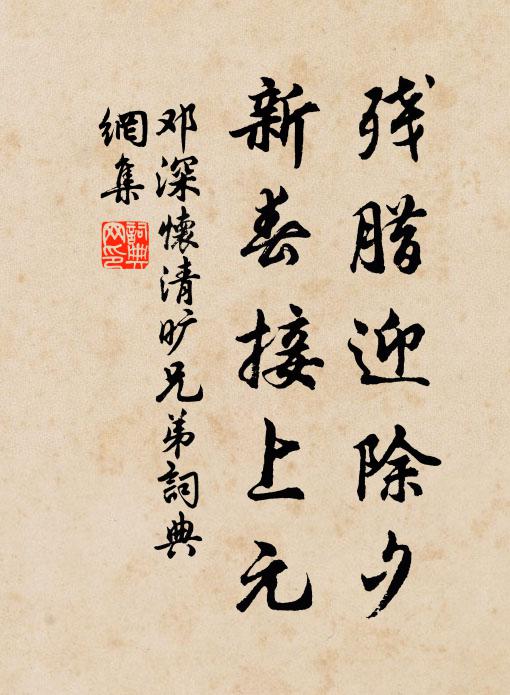 残腊迎除夕
新春接上元
邓深懷清旷兄弟詞典
網集
詞典
网印